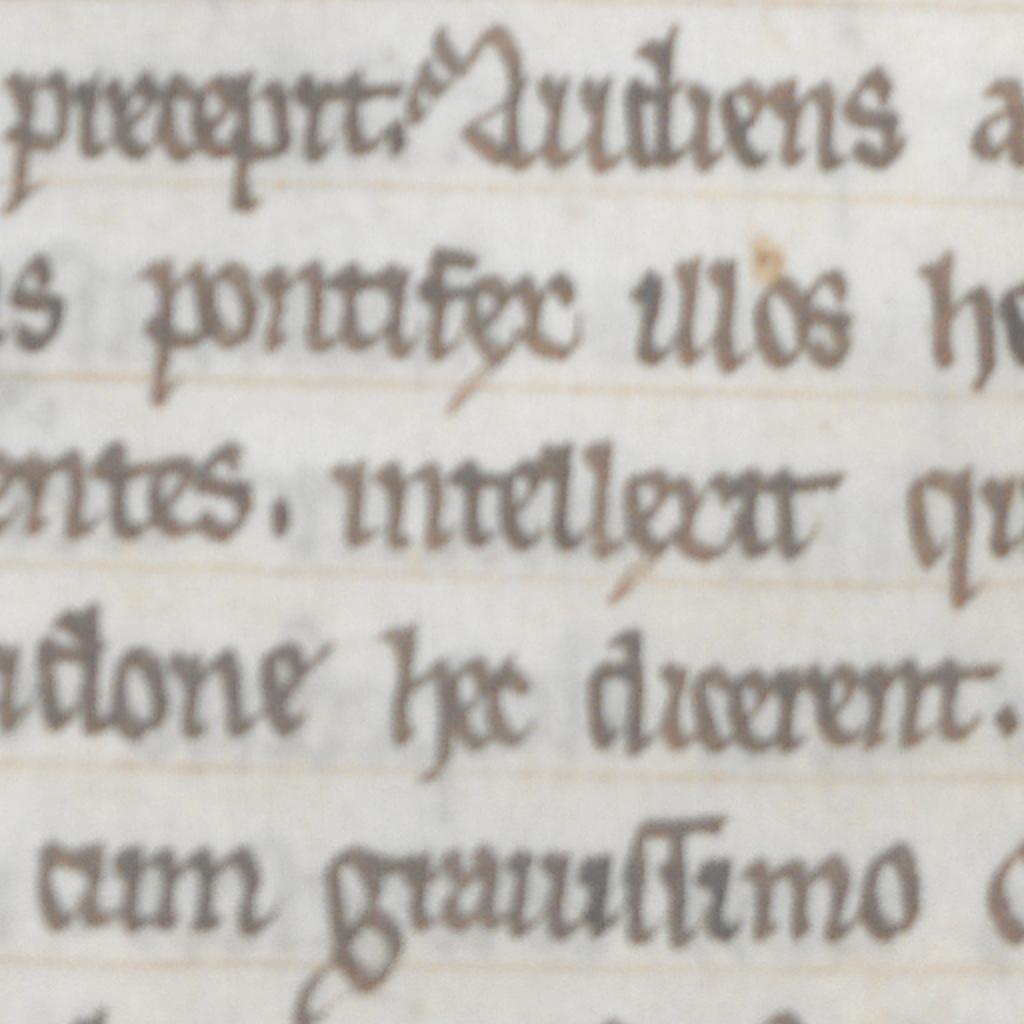 precepit. Audiens a
s pontifex illos he
entes. intellexit qu
adone hec dicerent.
cum grauissimo